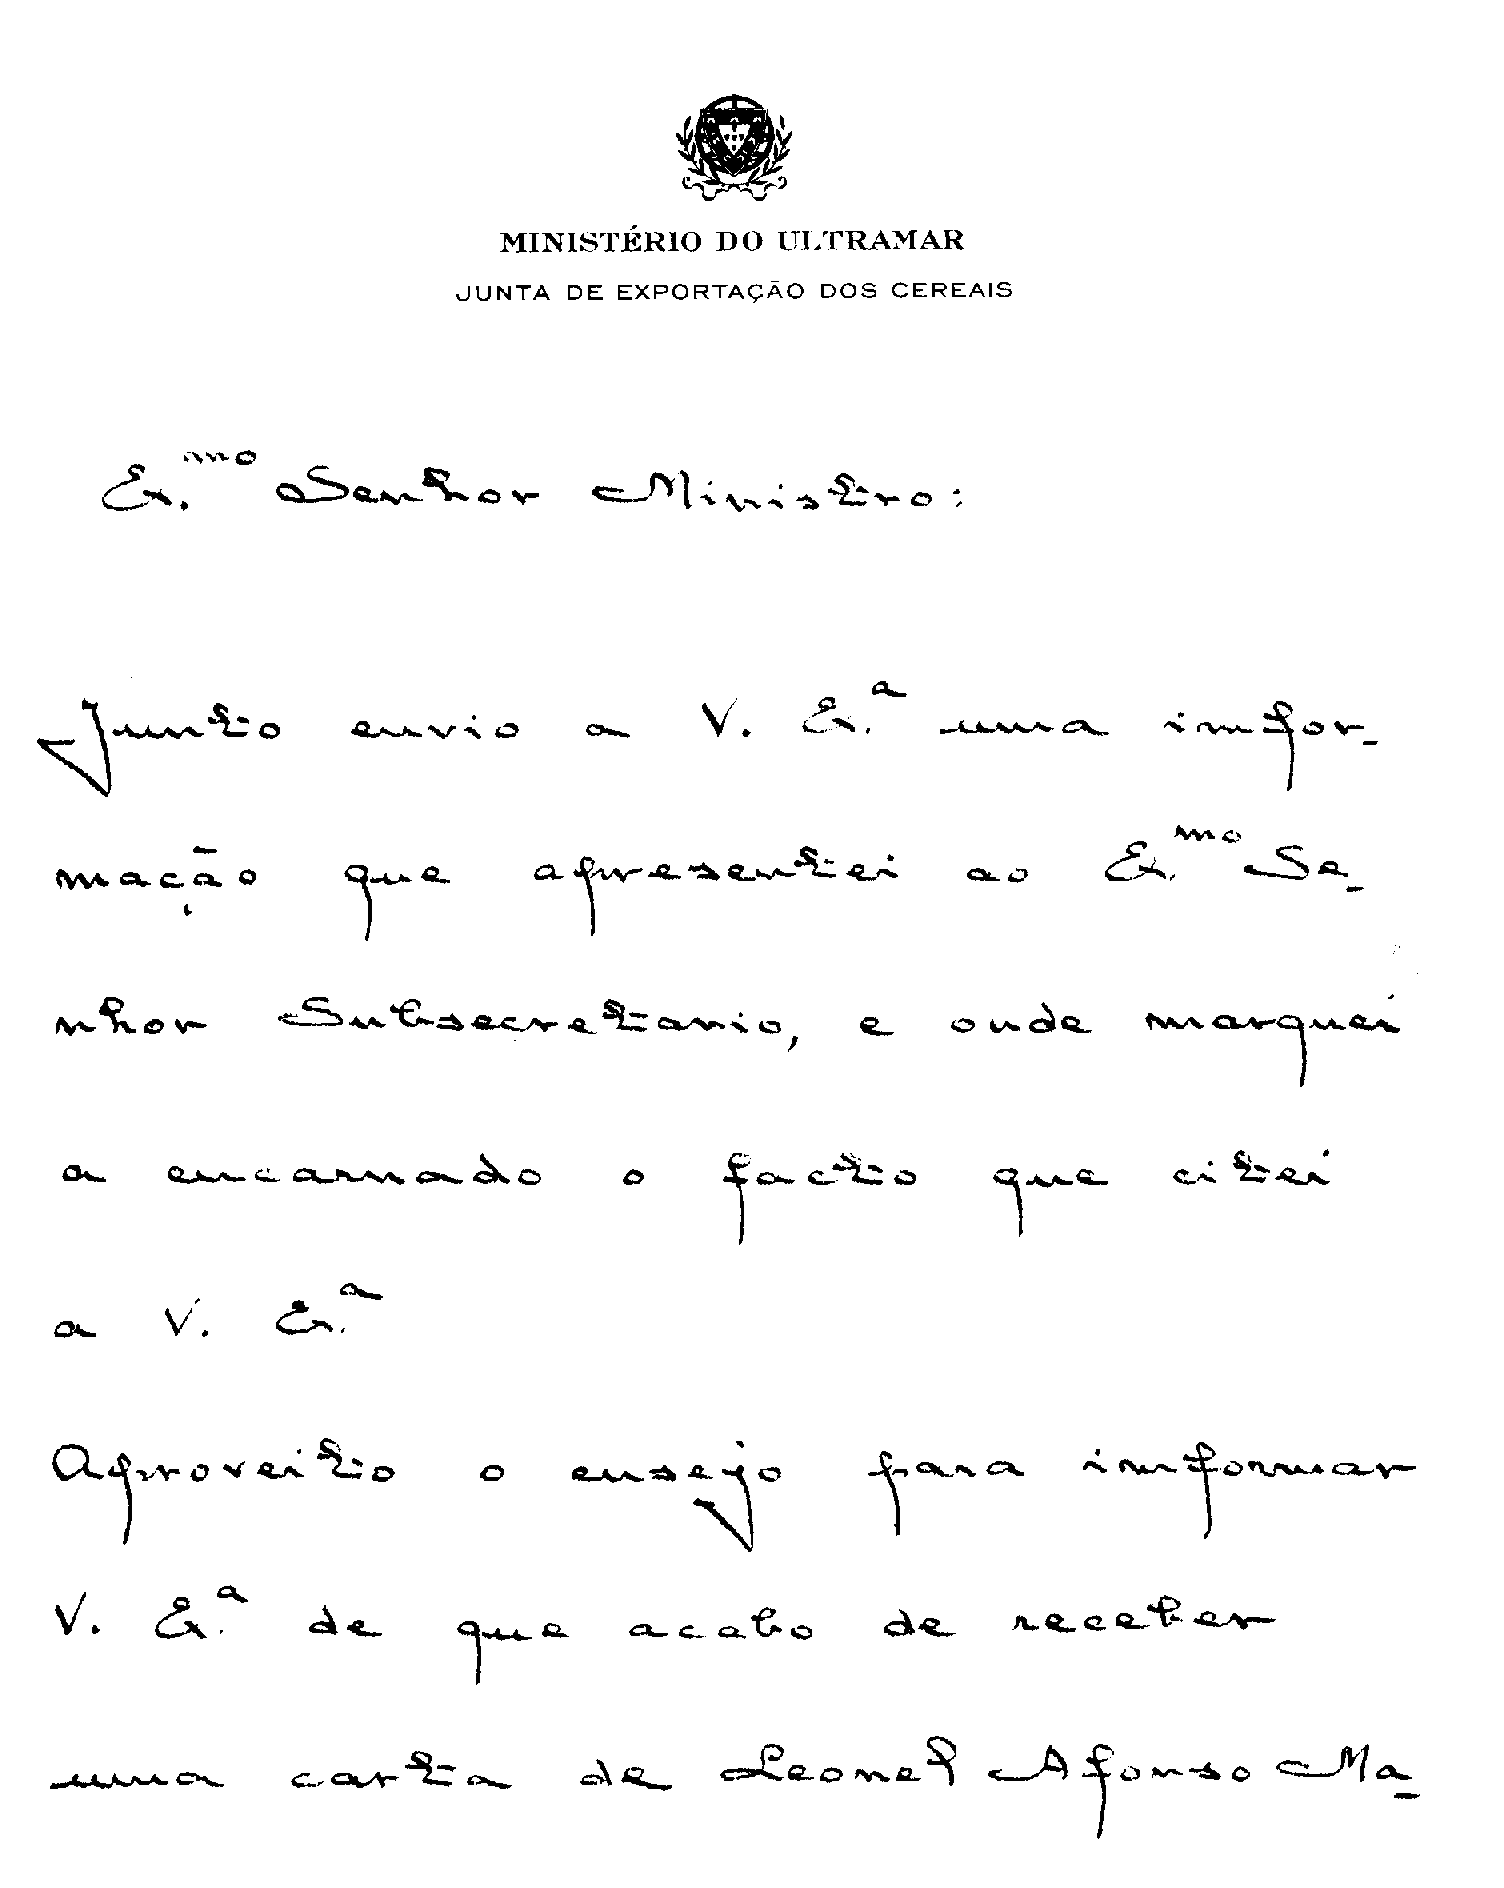 MINISTÉRIO DO ULTRAMAR
JUNTA DE EXPORTAÇÃO DOS CEREAIS
Ex.mo Senhor Ministro:
Junto envio a V. Ex.a uma infor-
mação que apresentei ao Ex.mo Se-
nhor Subsecretario, e onde marquei
a encarnado o facto que citei
a V. Ex.a
Aproveito o ensejo para informar
V. Ex.a de que acabo de receber
uma carta de Leonel Afonso Ma-